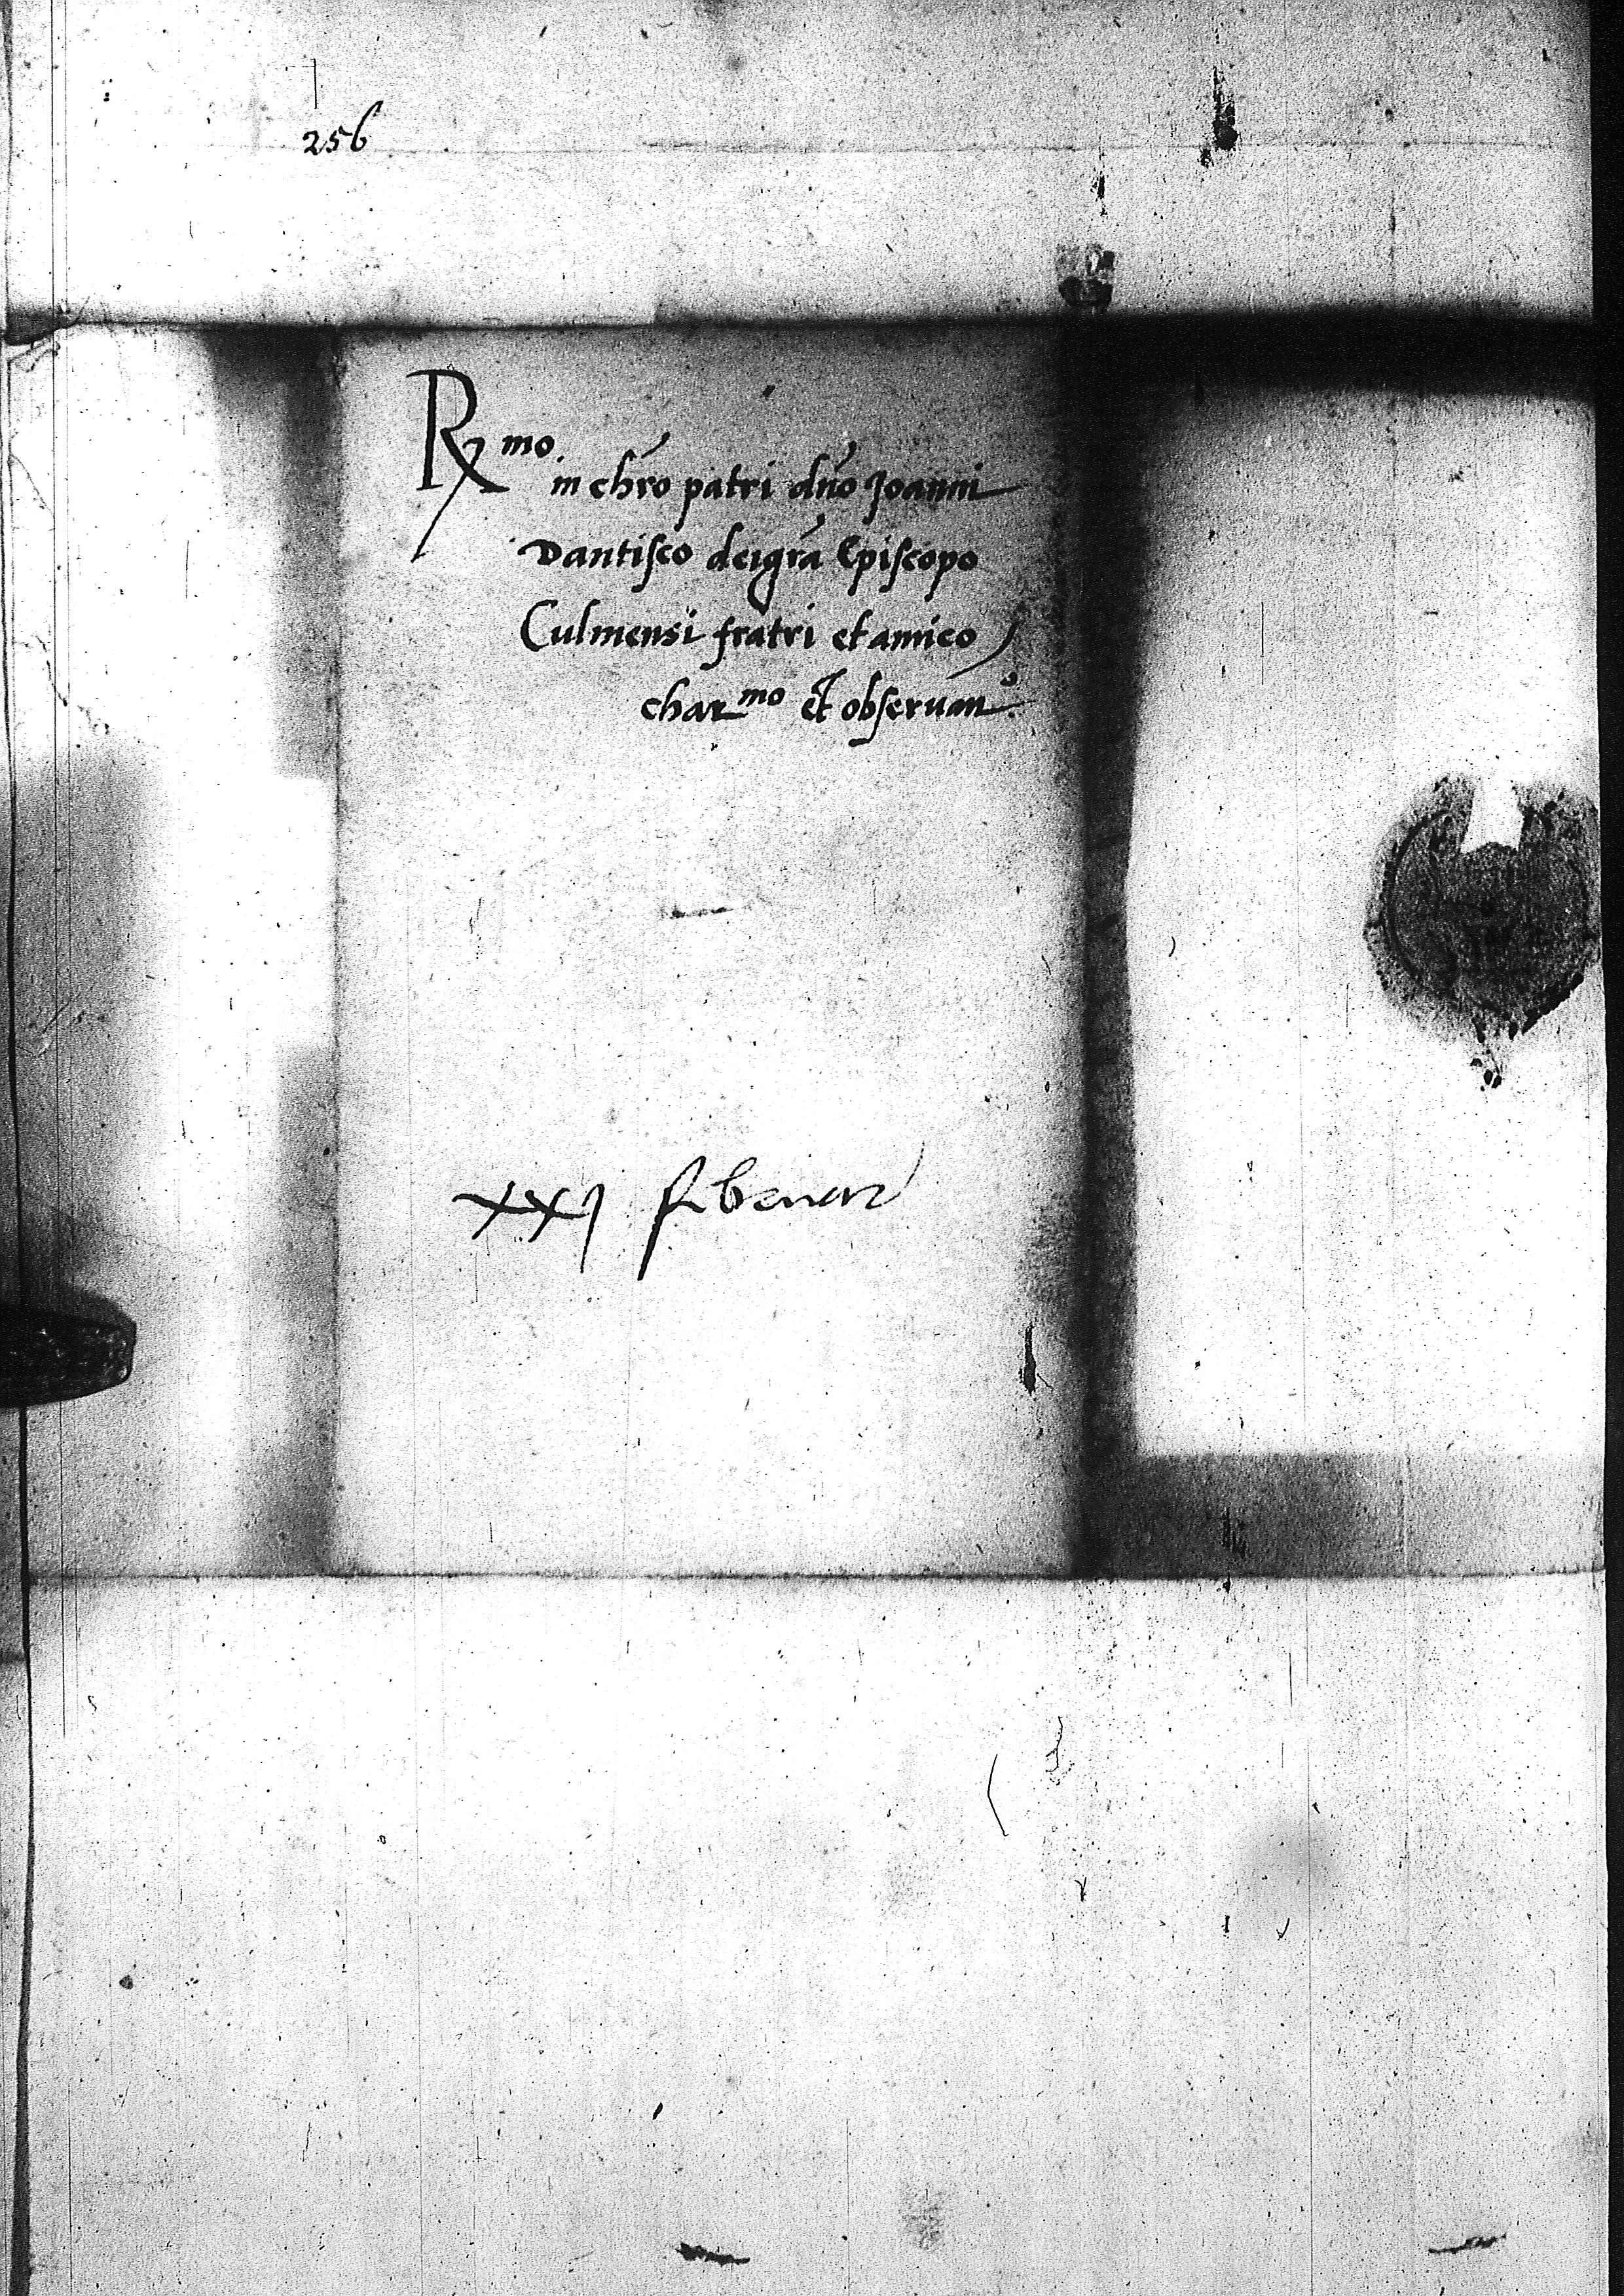 256
Rmo
in chro patri dno Joanni
Dantisco dei gra Episcopo
Culmensi fratri et amico
charmo et obseruan
XXI